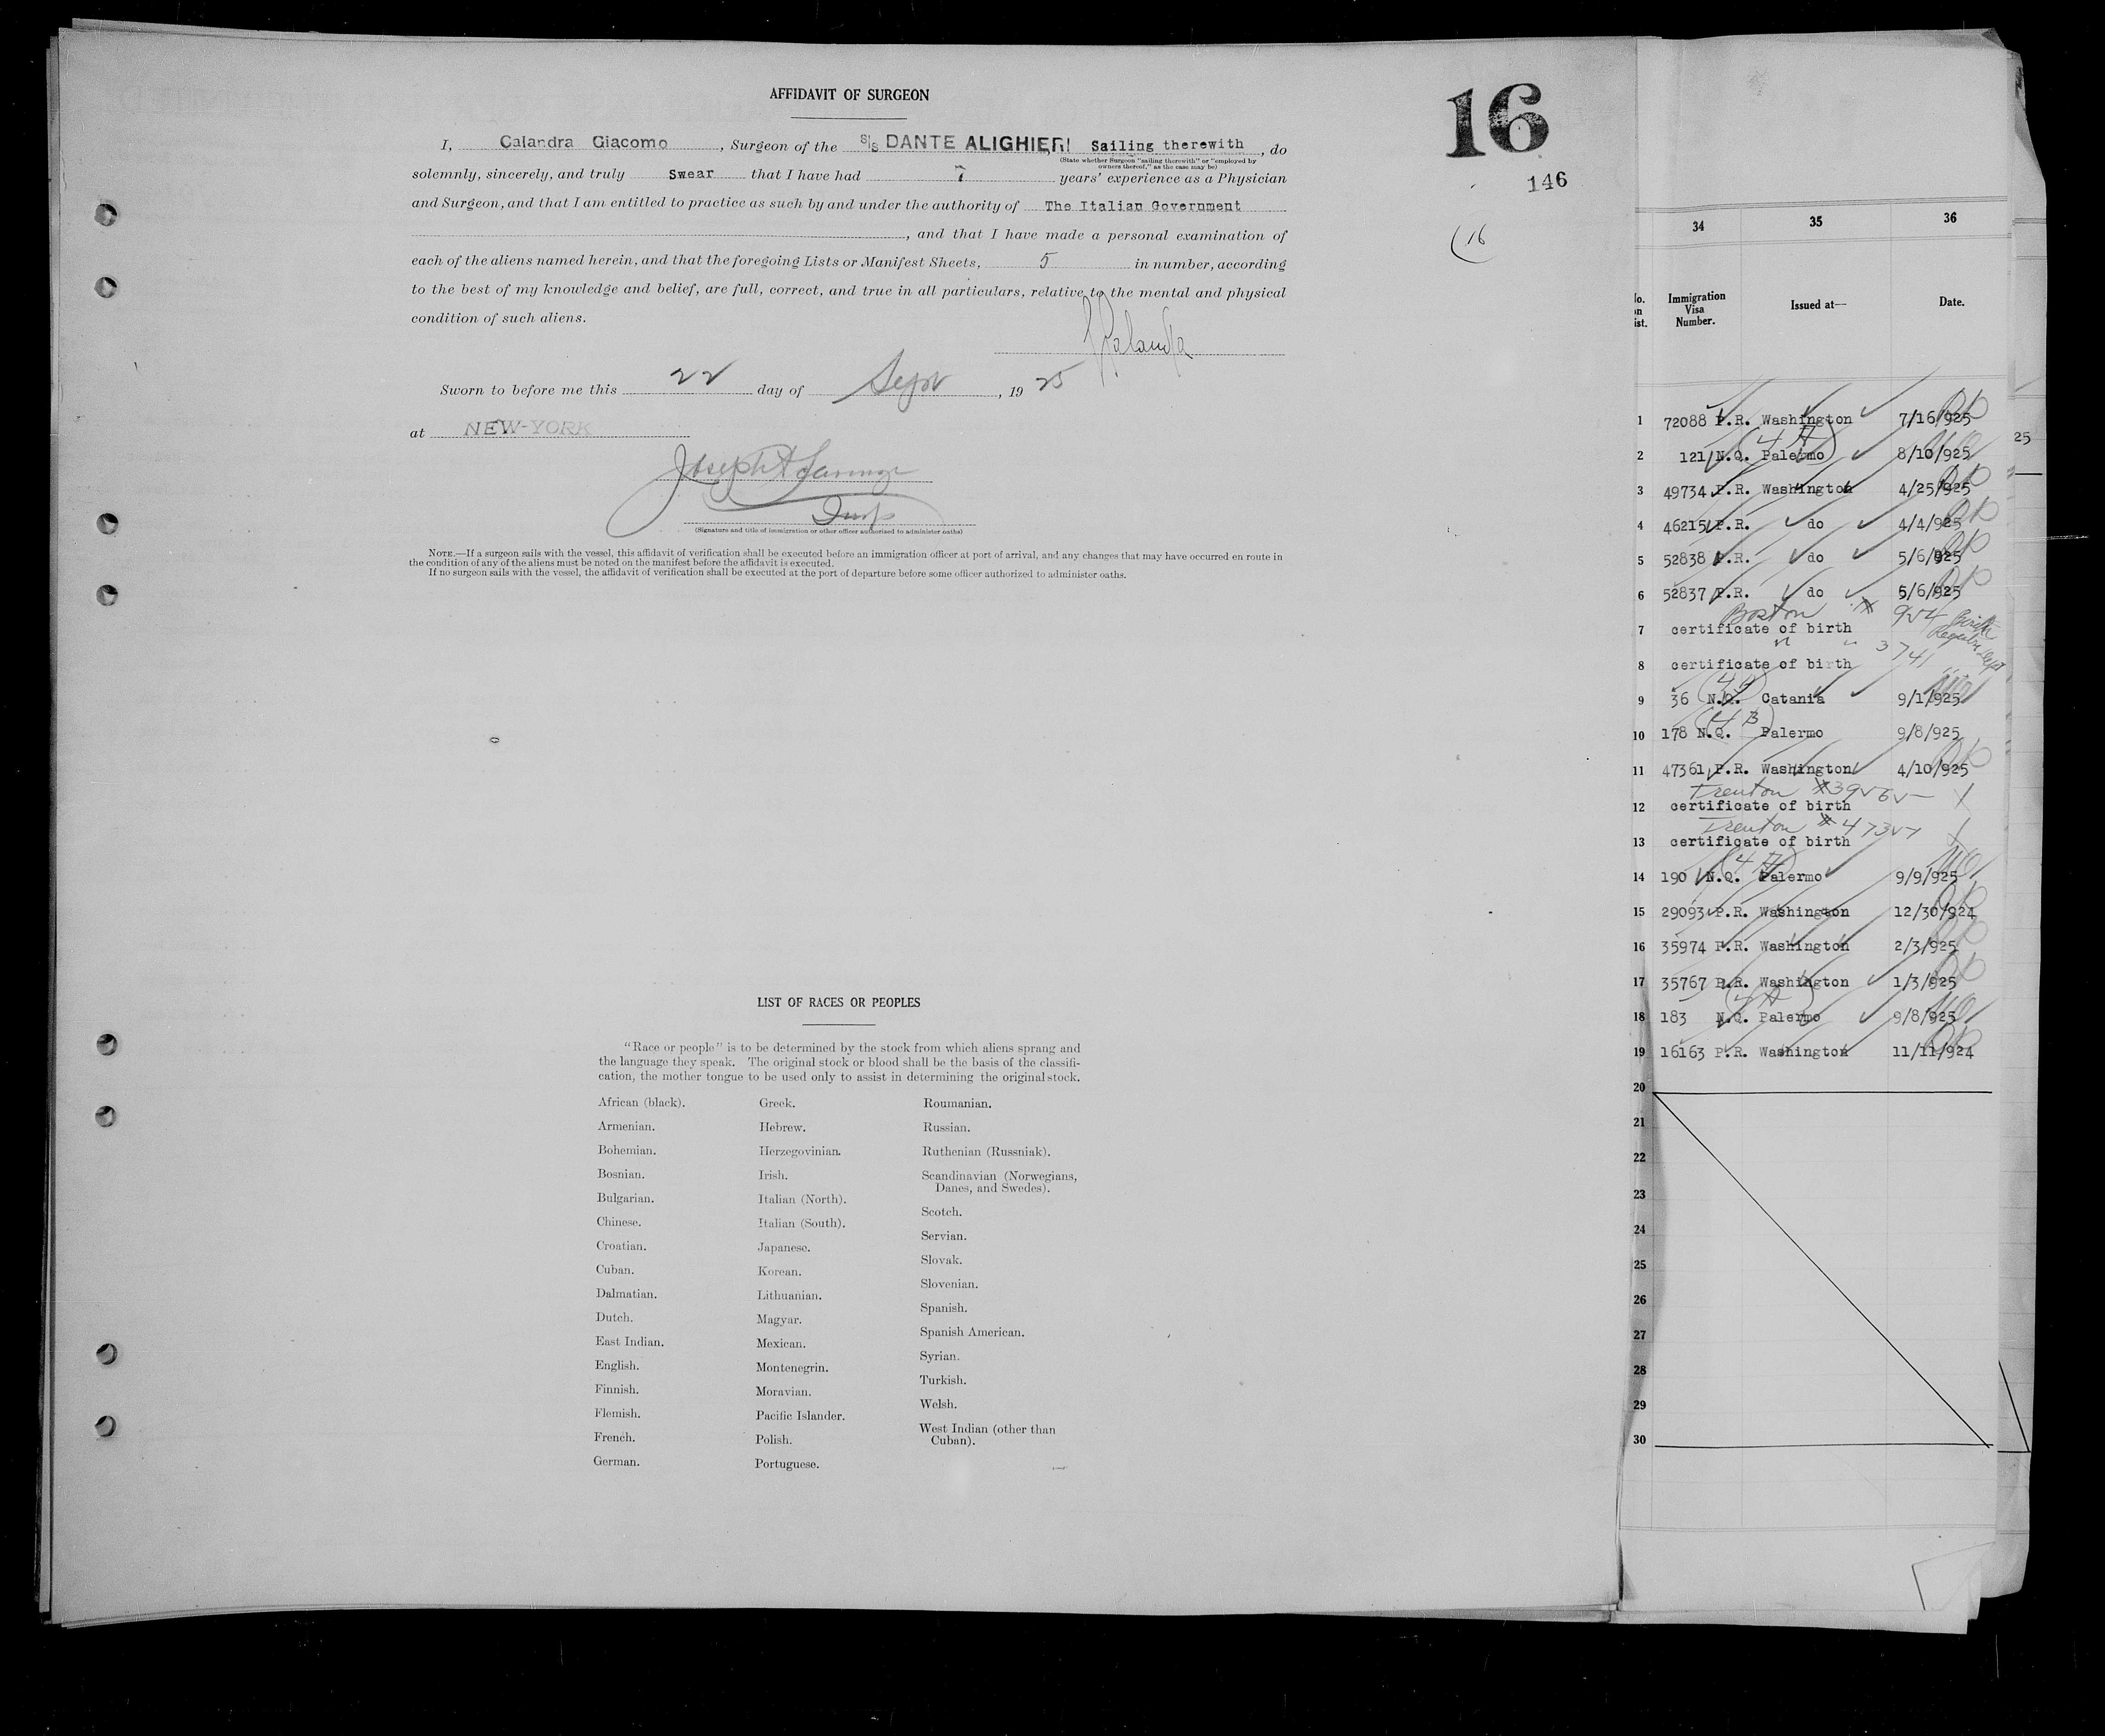 AFFIDAVIT OF SURGEON
16
146
(16
I, Calandra Giacomo, Surgeon of the S/S DANTE ALIGHIERI Sailing therewith, do
(State whether Surgeon "sailing therewith" or "employed by owners thereof," as the case may be)
solemnly, sincerely, and truly Swear that I have had 7 years' experience as a Physician
and Surgeon, and that I am entitled to practice as such by and under the authority of The Italian Government
, and that I have made a personal examination of
each of the aliens named herein, and that the foregoing Lists or Manifest Sheets, 5 in number, according
to the best of my knowledge and belief, are full, correct, and true in all particulars, relative to the mental and physical
condition of such aliens.
Sworn to before me this 22 day of Sept, 1925
at NEW-YORK
Insp
(Signature and title of immigration or other officer authorized to administer oaths)
NOTE.—If a surgeon sails with the vessel, this affidavit of verification shall be executed before an immigration officer at port of arrival, and any changes that may have occurred en route in
the condition of any of the aliens must be noted on the manifest before the affidavit is executed.
If no surgeon sails with the vessel, the affidavit of verification shall be executed at the port of departure before some officer authorized to administer oaths.
LIST OF RACES OR PEOPLES
"Race or people" is to be determined by the stock from which aliens sprang and
the language they speak. The original stock or blood shall be the basis of the classifi-
cation, the mother tongue to be used only to assist in determining the original stock.
African (black).
Armenian.
Bohemian.
Bosnian.
Bulgarian.
Chinese.
Croatian.
Cuban.
Dalmatian.
Dutch.
East Indian.
English.
Finnish.
Flemish.
French.
German.
Greek.
Hebrew.
Herzegovinian.
Irish.
Italian (North).
Italian (South).
Japanese.
Korean.
Lithuanian.
Magyar.
Mexican.
Montenegrin.
Moravian.
Pacific Islander.
Polish.
Portuguese.
Roumanian.
Russian.
Ruthenian (Russniak).
Scandinavian (Norwegians,
Danes, and Swedes).
Scotch.
Servian.
Slovak.
Slovenian.
Spanish.
Spanish American.
Syrian.
Turkish.
Welsh.
West Indian (other than
Cuban).
34 35 36
Immigration Visa Number. Issued at— Date.
1 72088 P.R. Washington 7/16/925
(4 A)
2 121 N.Q. Palermo 8/10/925
25
3 49734 P.R. Washington 4/25/925
4 46215 P.R. do 4/4/925
5 52838 P.R. do 5/6/925
6 52837 P.R. do 5/6/925
Boston # 954 Birth
7 certificate of birth
" " 3741
8 certificate of birth
9 36 N.Q. Catania 9/1/925
(4 B)
10 178 N.Q. Palermo 9/8/925
11 47361 P.R. Washington 4/10/925
Trenton
12 certificate of birth
Trenton
13 certificate of birth
(4 A)
14 190 N.Q. Palermo 9/9/925
15 29093 P.R. Washington 12/30/924
16 35974 P.R. Washington 2/3/925
17 35767 P.R. Washington 1/3/925
(4 A)
18 183 N.Q. Palermo 9/8/925
19 16163 P.R. Washington 11/11/924
20
21
22
23
24
25
26
27
28
29
30